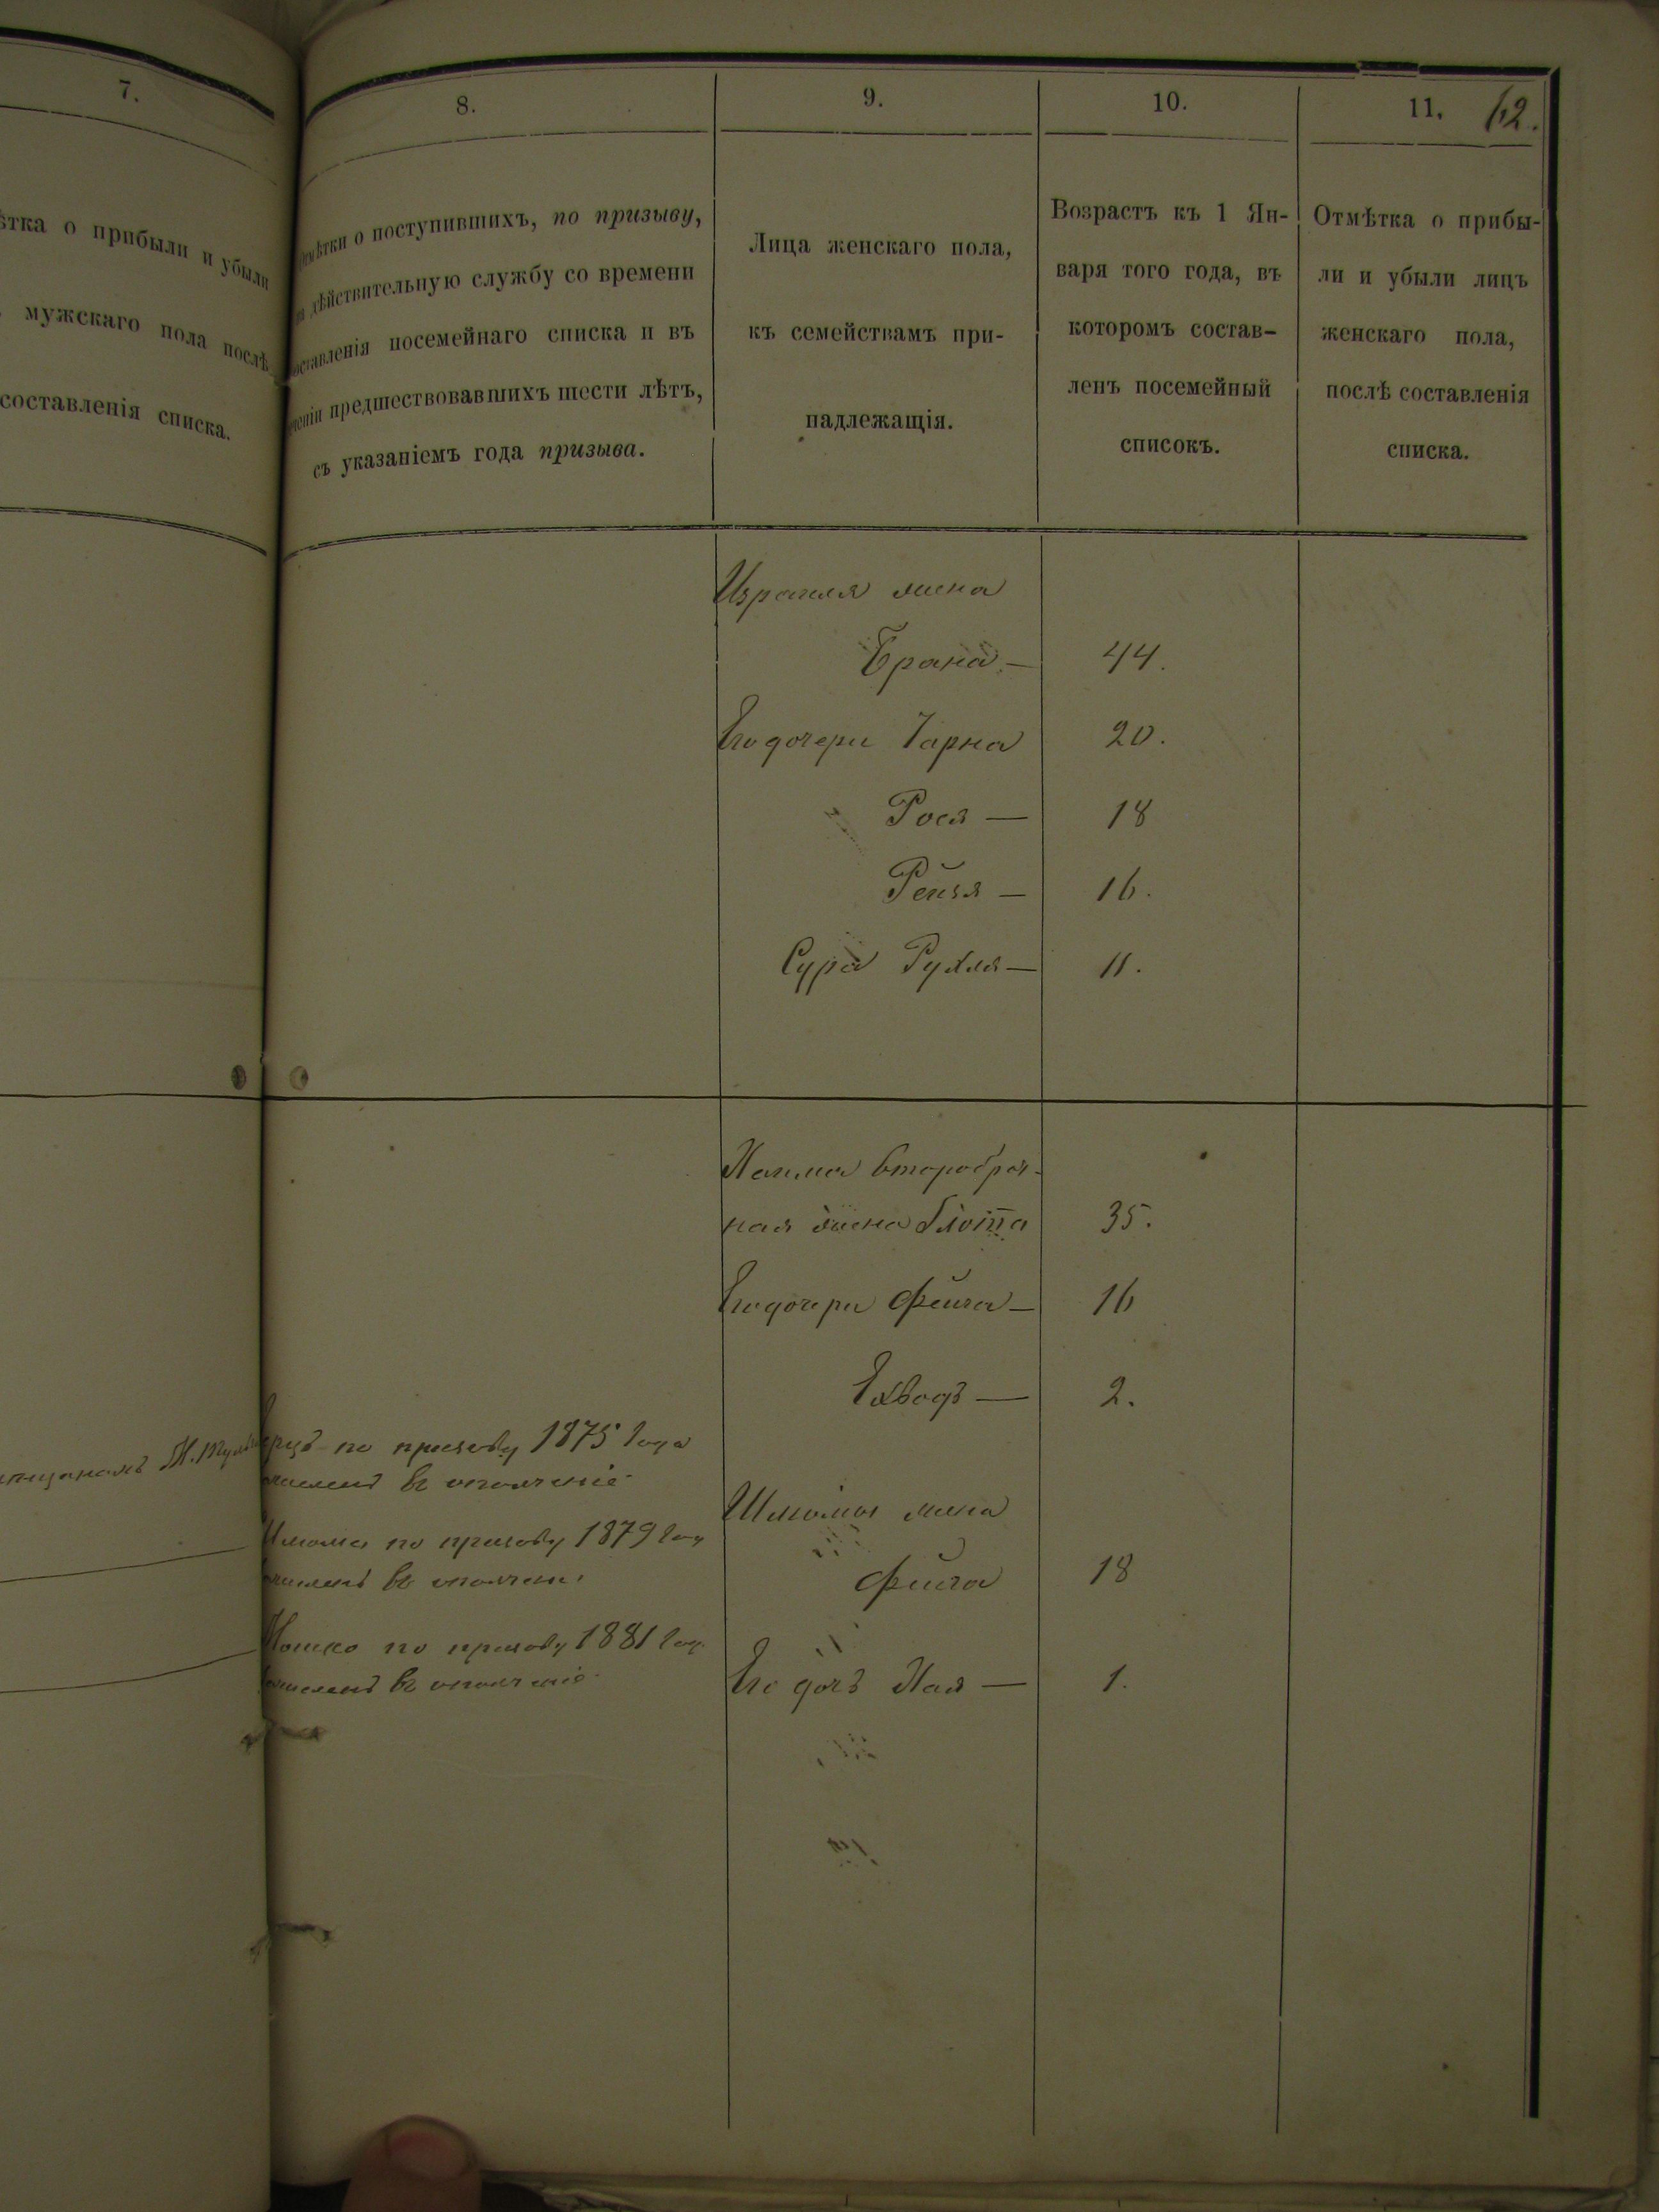 7.
ѣтка о прибыли и убыли
мужскаго пола послѣ
составленія списка.
8.
Отмѣтки о поступившихъ, по призыву,
на дѣйствительную службу со времени
составленія посемейнаго списка и въ
теченіи предшествовавшихъ шести лѣтъ,
съ указаніемъ года призыва.
9.
Лица женскаго пола,
къ семействамъ при-
надлежащія.
10.
Возрастъ къ 1 Ян-
варя того года, въ
которомъ состав-
ленъ посемейный
списокъ.
11.
62.
Отмѣтка о прибы-
ли и убыли лицъ
женскаго пола,
послѣ составленія
списка.
Израиля жена
Брана — 44.
Его дочери Чарна 20.
Рося — 18
Рейзя — 16.
Сура Рухля — 11.
второбрач-
ная жена 35.
Его дочери Фейга — 16
Ехводъ — 2.
по призыву 1875 года
въ ополченіе
Шлома по призыву 1879 году
въ ополчен.
Мошко по призыву 1881 году
въ ополченіе
Шломы жена
Фейга 18
Его дочь Хая — 1.